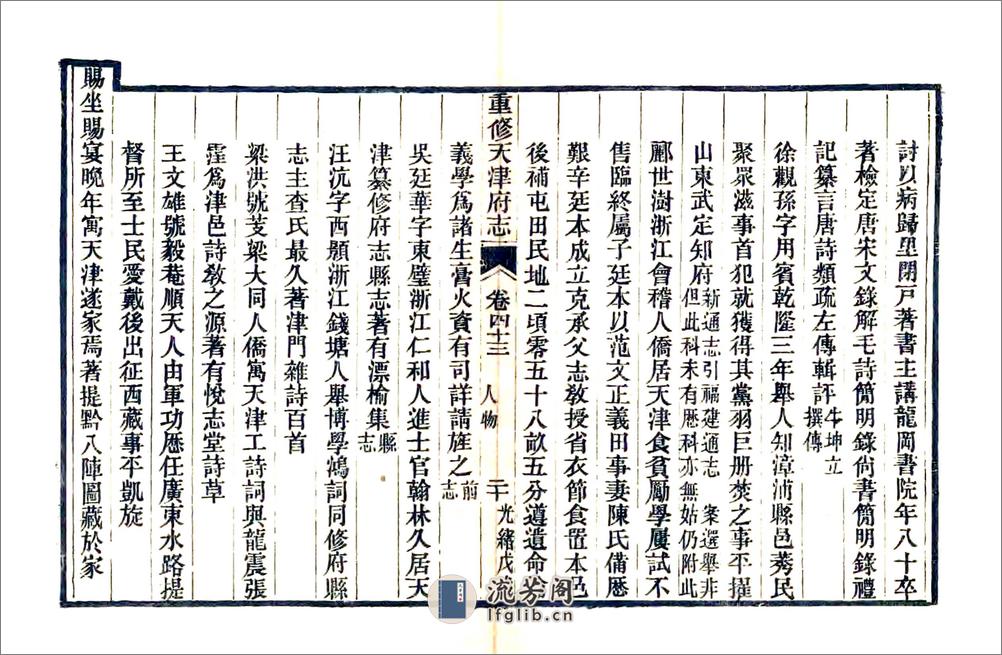 討以病歸里閉戸著書主講龍岡書院年八十卒
著檢定唐宋文錄解毛詩簡明錄尚書簡明錄禮
記纂言唐詩類疏左傳輯評牛坤立撰傳
徐觀孫字用賓乾隆三年舉人知漳浦縣邑莠民
聚眾滋事首犯就獲得其黨羽巨册焚之事平擢
山東武定知府新通志引福建通志 案選舉非但此科未有歷科亦無姑仍附此
酈世澍浙江會稽人僑居天津食貧勵學屢試不
售臨終屬子廷本以范文正義田事妻陳氏備歷
艱辛廷本成立克承父志敎授省衣節食置本邑
後補屯田民地二頃零五十八畝五分遵遺命作
重修天津府志 卷四十三 人物 二十 光緒戊戌
義學爲諸生膏火資有司詳請旌之前志
吳廷華字東璧浙江仁和人進士官翰林久居天
津纂修府志縣志著有漂榆集縣志
汪沆字西顥浙江錢塘人舉博學鴻詞同修府縣
志主查氏最久著津門雜詩百首
梁洪號芰梁大同人僑寓天津工詩詞與龍震張
霔爲津邑詩敎之源著有悅志堂詩草
王文雄號毅菴順天人由軍功歷任廣東水路提
督所至士民愛戴後出征西藏事平凱旋
賜坐賜宴晚年寓天津遂家焉著提黔八陣圖藏於家
流芳阁
lfglib.cn